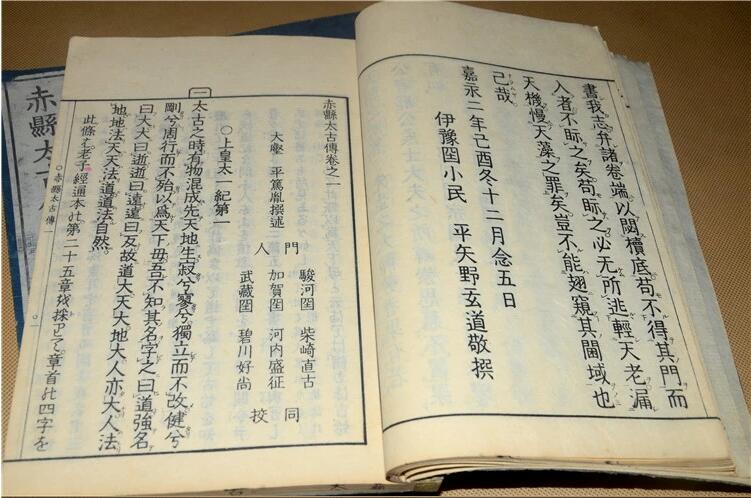 書我志弁諸卷端以閟櫝底苟不得其門而
入者不眎之矣苟眎之必无所逃輕天老漏
天機慢天藻之罪矣豈不能翅窺其閫域也
己哉
嘉永二年己酉冬十二月念五日
伊豫圀小民 平矢野玄道敬撰
赤縣太古傳卷之一
大壑 平篤胤撰述
門人
駿河圀 柴崎直古
加賀圀 河内盛征
武藏圀 碧川好尚
同校
〇上皇太一紀第一
太古之時有物混成先天地生寂兮寥兮獨立而不改健兮
剛兮周行而不殆以爲天下毋吾不知其名字之曰道強名
曰大大曰逝逝曰遠遠曰反故道大天大地大人亦大人法
地地法天天法道道法自然
此條は老子經通本の第二十五章を採りて章首の四字を
一
〇赤縣太古傳一
赤縣太古